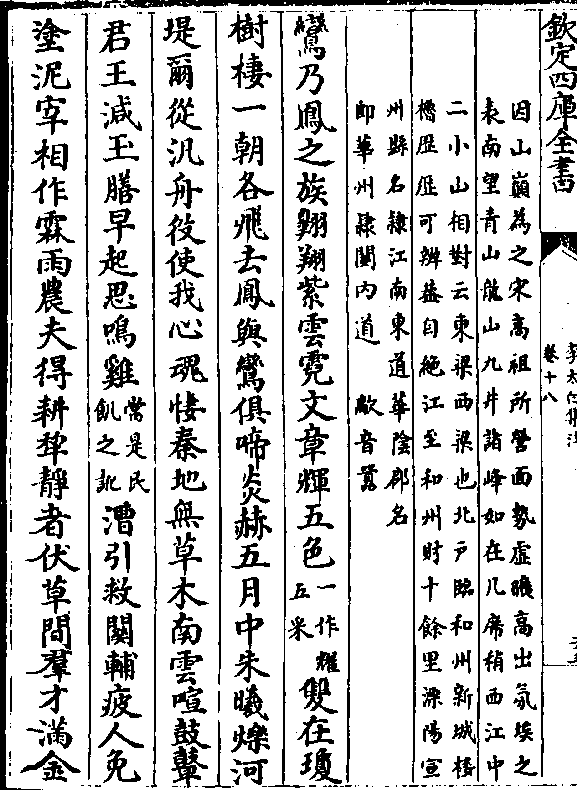 欽定四庫全書
李太白集注
卷十八
因山巔為之宋高祖所營面勢虛曠高出氛埃之
表南望青山龍山九井諸峰如在几席稍西江中
二小山相對云東梁西梁也北戶臨和州新城樓
櫓歷歷可辨蓋自絕江至和州財十餘里溧陽宣
州縣名隸江南東道華陰郡名
即華州隸關內道 歊音囂
鸞乃鳳之族翱翔紫雲霓文章輝五色一作耀五采雙在瓊
樹棲一朝各飛去鳳與鸞俱啼炎赫五月中朱曦爍河
堤爾從汎舟役使我心魂悽秦地無草木南雲喧鼓鼙
君王減玉膳早起思鳴雞當是民飢之訛漕引救關輔疲人免
塗泥宰相作霖雨農夫得耕犂靜者伏草間羣才滿金